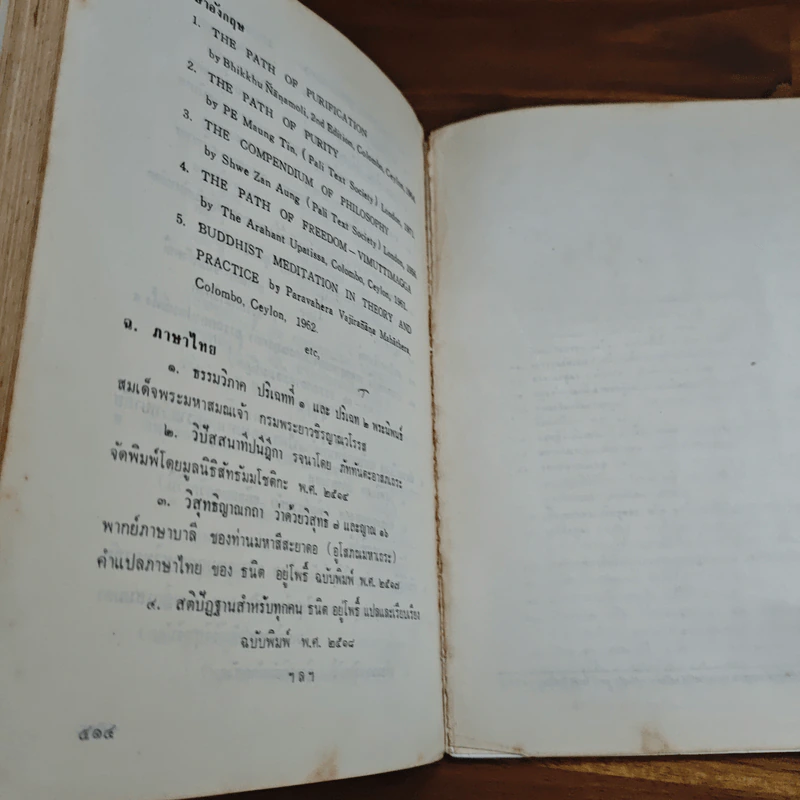 าอังกฤษ
1. THE PATH OF PURIFICATION
by Bhikkhu Ñāṇamoli, 2nd Edition, Colombo, Ceylon, 1964.
2. THE PATH OF PURITY
by PE Maung Tin, ( Pali Text Society ) London,
3. THE COMPENDIUM OF PHILOSOPHY
by Shwe Zan Aung ( Pali Text Society ) London,
4. THE PATH OF FREEDOM – VIMUTTIMAGGA
by The Arahant Upatissa, Colombo, Ceylon, 1961.
5. BUDDHIST MEDITATION IN THEORY AND
PRACTICE by Paravahera Vajirañāṇa Mahāthera,
Colombo, Ceylon, 1962.
etc,
ฉ. ภาษาไทย
๑. ธรรมวิภาค ปริเฉทที่ ๑ และ ปริเฉท ๒ พระนิพนธ์
สมเด็จพระมหาสมณเจ้า กรมพระยาวชิรญาณวโรรส
๒. วิปัสสนาทีปนีฎีกา รจนาโดย ภัททันตะอาสภเถระ
จัดพิมพ์โดยมูลนิธิสัทธัมมโชติกะ พ.ศ. ๒๕๑๔
๓. วิสุทธิญาณกถา ว่าด้วยวิสุทธิ ๗ และญาณ ๑๖
พากย์ภาษาบาลี ของท่านมหาสีสะยาดอ (อูโสภณมหาเถระ)
คำแปลภาษาไทย ของ ธนิต อยู่โพธิ์ ฉบับพิมพ์ พ.ศ. ๒๕๑๘
๔. สติปัฏฐานสำหรับทุกคน ธนิต อยู่โพธิ์ แปลและเรียบเรียง
ฉบับพิมพ์ พ.ศ. ๒๕๑๘
ฯลฯ
๕๑๔